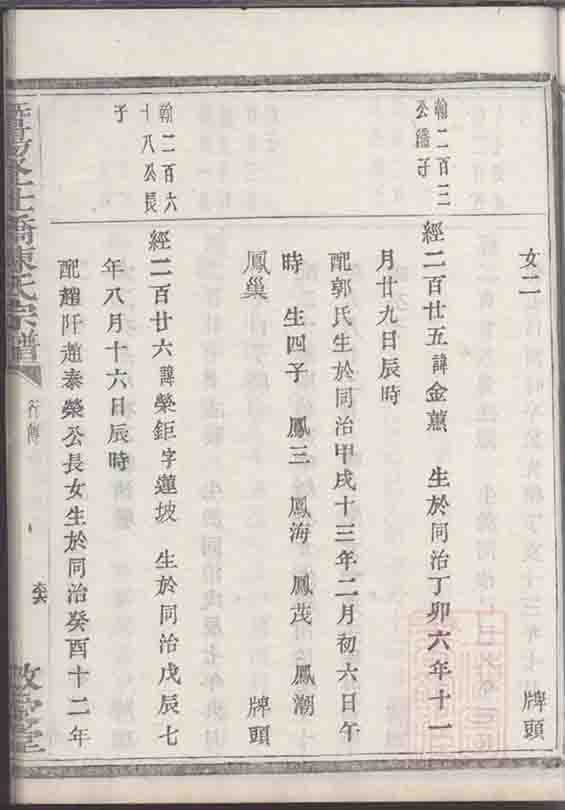 女二　牌頭
翰二百三
公𦙍子
經二百廿五諱金薰　生於同治丁卯六年十一
月廿九日辰時
配郭氏生於同治甲戌十三年二月初六日午
時　生四子　鳳三　鳳海　鳳茂　鳳潮
鳳巢　牌頭
翰二百六
十八公長
子
經二百廿六諱榮鉅字蓮坡　生於同治戊辰七
年八月十六日辰時
配趙阡趙泰榮公長女生於同治癸酉十二年
暨陽上土橋陳氏宗譜
行傳
敬堂